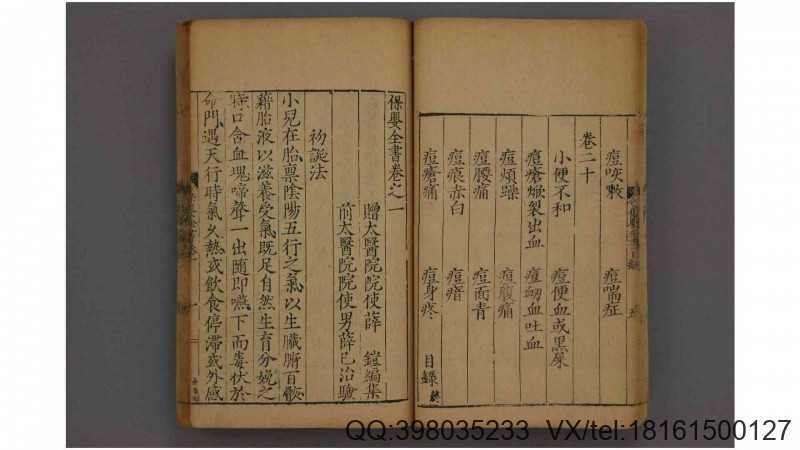 痘咳嗽 痘喘症
卷二十
小便不和 痘便血或黑屎
痘瘡㿺裂出血 痘衂血吐血
痘煩躁 痘腹痛
痘腰痛 痘面青
痘痕赤白 痘瘖
痘瘡痛 痘身疼
目録 終
保嬰全書卷之一
贈太醫院院使薛 鎧編集
前太醫院院使男薛己治驗
初誕法
小兒在胎稟陰陽五行之氣以生臟腑百骸
藉胎液以滋養受氣既足自然生育分娩之
際口含血塊啼聲一出隨即嚥下而毒伏於
命門遇天行時氣久熱或飲食停滯或外感
QQ:398035233 VX/tel:18161500127